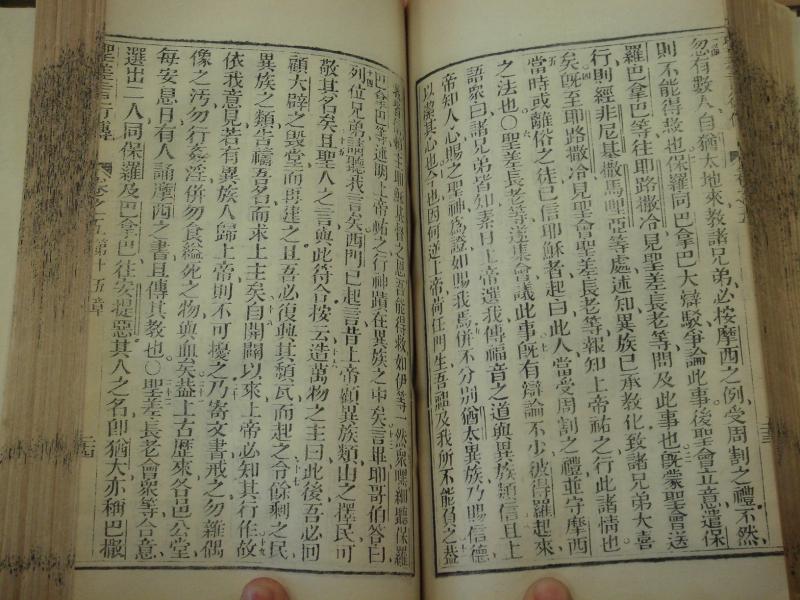 忽有數人自猶太地來教諸兄弟必按摩西之例受周割之禮不然
則不能得救也保羅同巴拿巴大辯駁爭論此事後聖會立意遣保
羅巴拿巴等往耶路撒冷見聖差長老等問及此事也既蒙聖會送
行則經非尼基撒馬哩亞等處述知異族已承教化致諸兄弟大喜
矣既至耶路撒冷見聖會聖差長老等報知上帝祐之行此諸情也
當時或離俗之徒已信耶穌者起曰此人當受周割之禮並守摩西
之法也〇聖差長老等遂集會議此事既有辯論不少彼得羅起來
語眾曰諸兄弟皆知素日上帝選我傳福音之道與異族類信且上
帝知人心賜之聖神為證如賜我焉併不分別猶太異族乃賜信德
以潔其心也今也因何逆上帝荷任門生吾祖及我所不能負之
主耶穌基督之恩吾能得救如伊等一然眾嘿細聽保羅
巴拿巴等述明上帝祐之行神蹟在異族之中矣言畢耶哥伯答曰
列位兄弟請聽我言矣西門已起言昔上帝顧異族類由之擇民可
敬其名矣且聖人之言與此符合按云造萬物之主曰此後吾必回
顧大辟之毀堂而再建之且吾必復興其頹瓦而起之令餘剩之民
異族之類告禱吾名而求上主矣自開闢以來上帝必知其行作故
依我意見若有異族人歸上帝則不可擾之乃寄文書戒之勿雜偶
像之污勿行姦淫併勿食縊死之物與血矣蓋上古歷來各邑公堂
每安息日有人誦摩西之書且傳其教也〇聖差長老會眾等合意
選出二人同保羅及巴拿巴往安提惡其人之名即猶大亦稱巴撒
聖差言行傳 卷之五第十五章